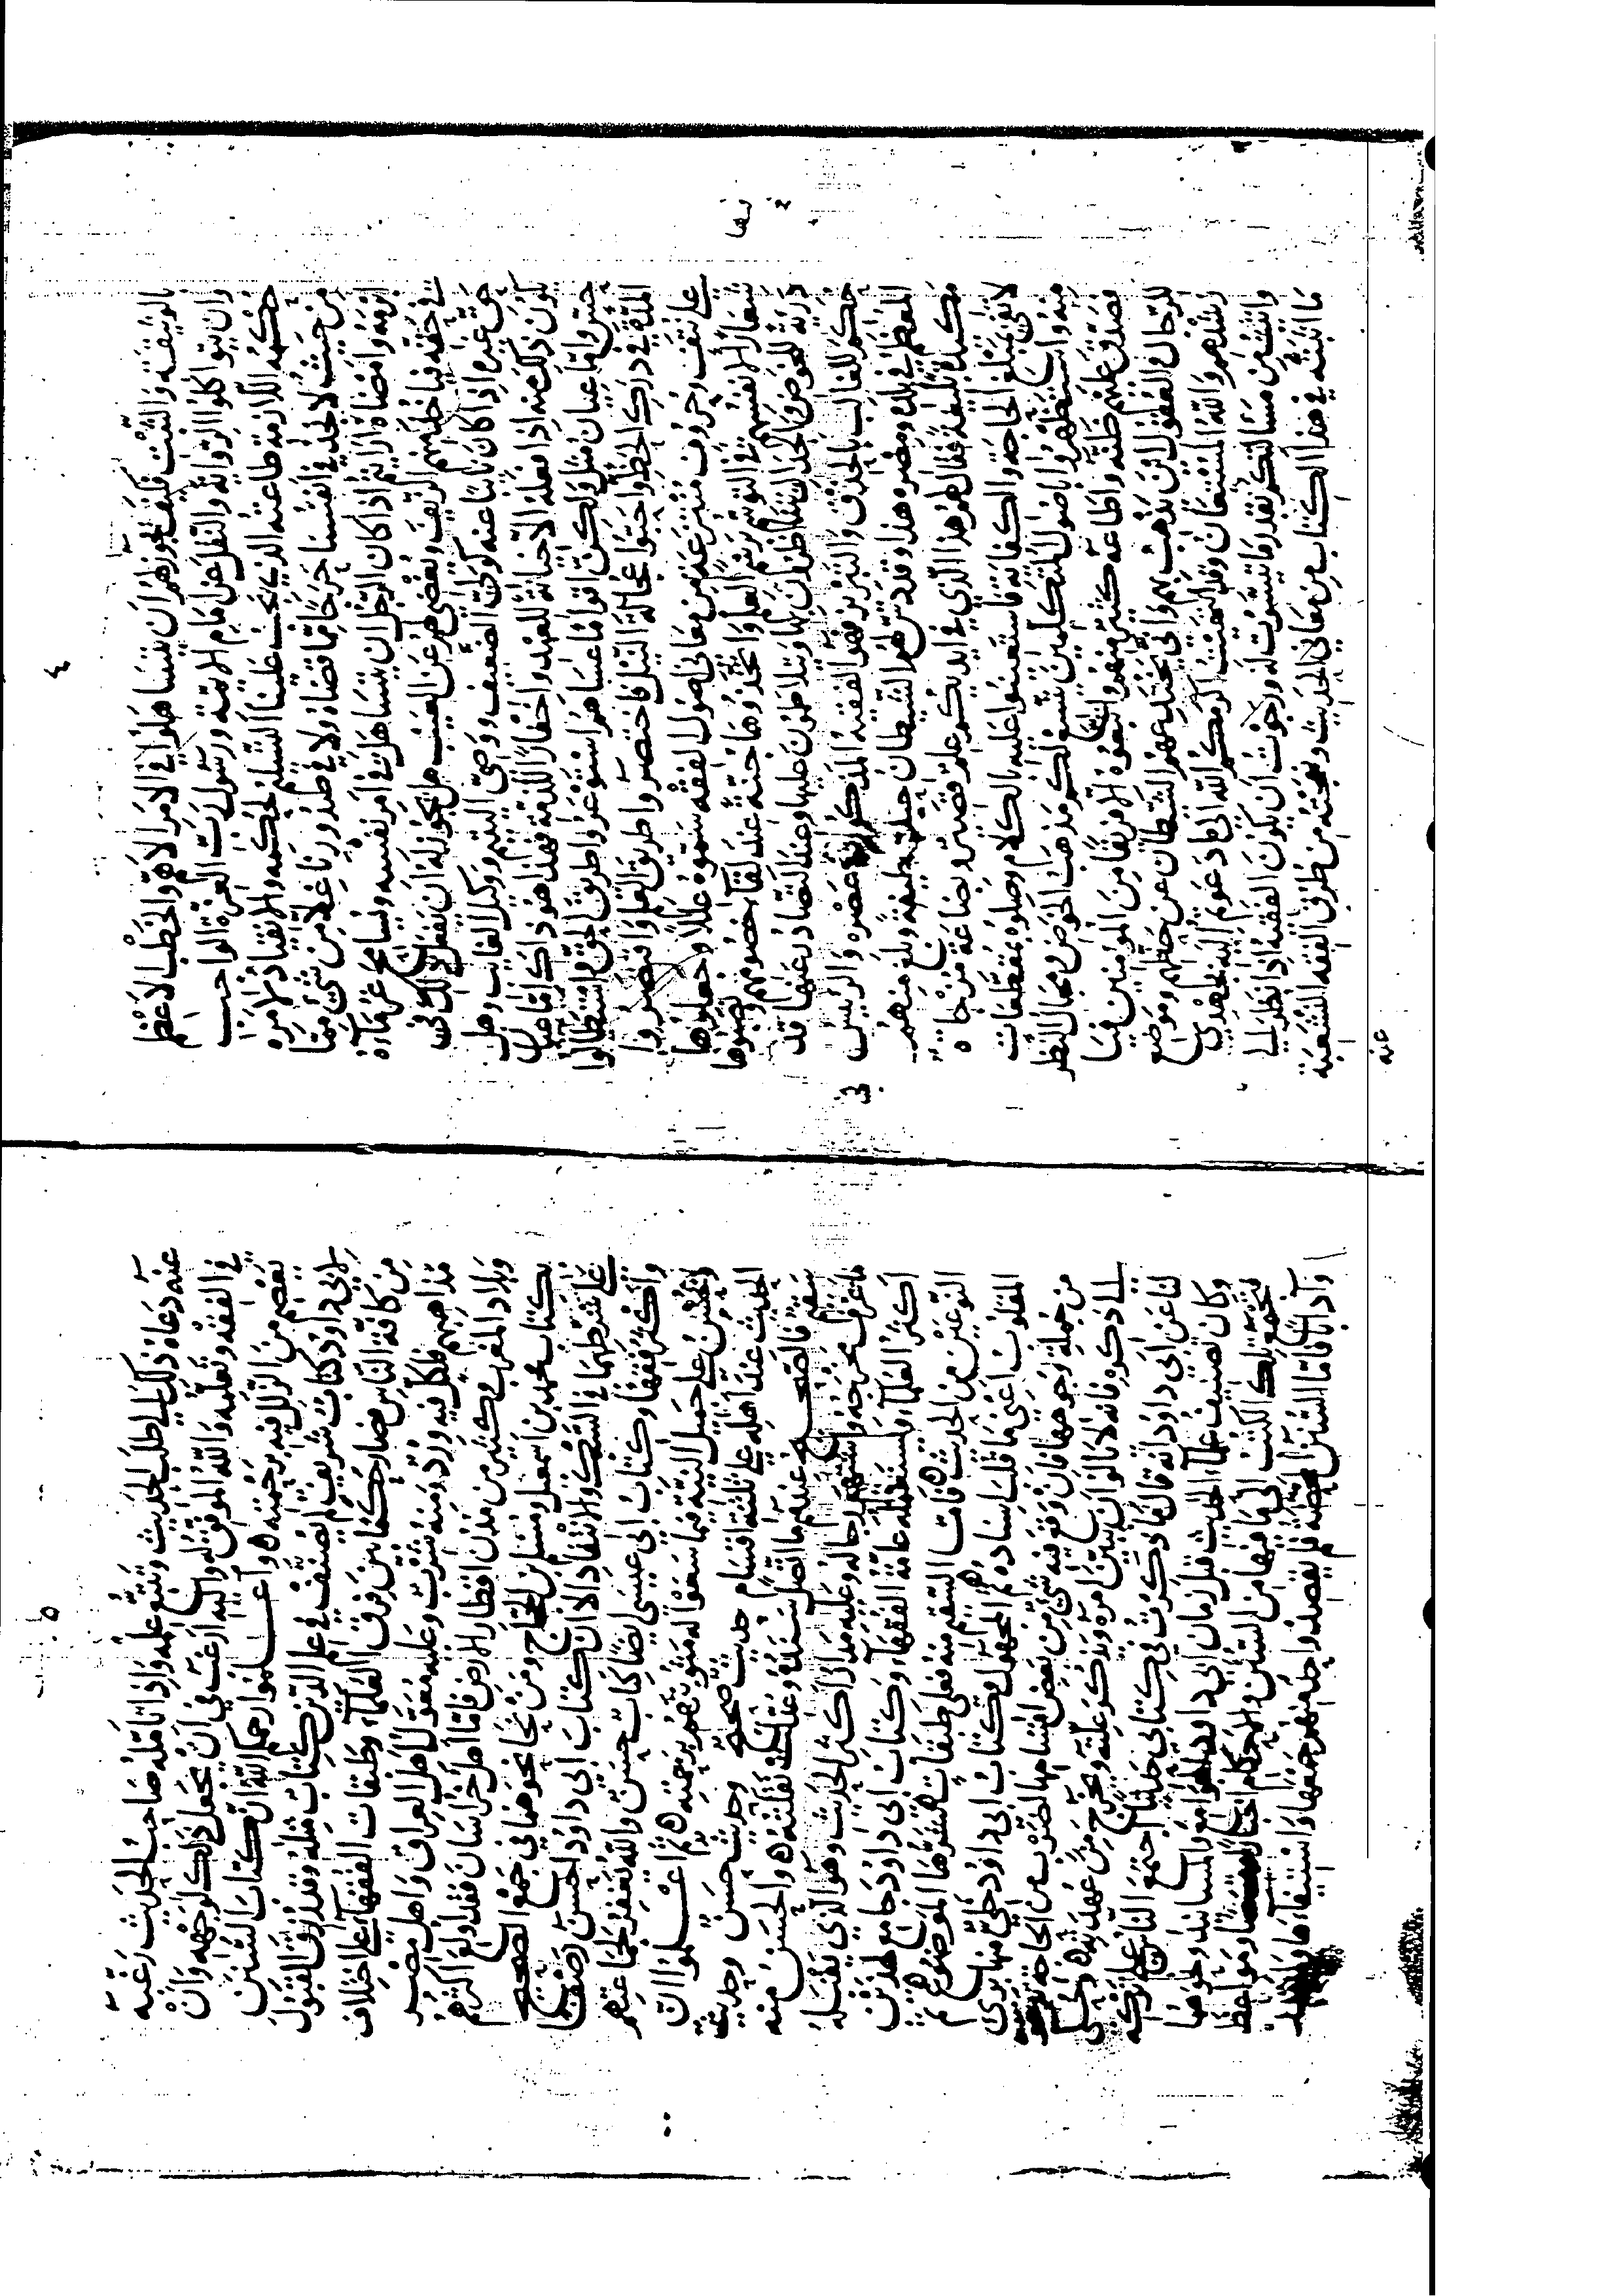 بالوثيقة والتثبت فكيف يجوز لهم ان يتساهلوا في الامر الاهم والخطب الاعظم
وان يتواكلوا الرواية والنقل عن امام الائمة ورسول رب العزة الواجب
حكمه اللازمة طاعته الذي يجب علينا التسليم لحكمه والانقياد لامره
من حيث لا نجد في انفسنا حرجا مما قضاه ولا في صدورنا غلا من شيء مما
ابرمه وامضاه ارايتم اذا كان للرجل ان يتساهل في امر نفسه ويسامح غرماءه
في حقه فياخذ منهم الزيف ويغضي لهم عن العيب هل يجوز له ان يفعل ذلك في
حق غيره اذا كان نائبا عنه كولي الضعيف ووصي اليتيم ووكيل الغايب وهل
يكون ذلك منه اذا فعله الا خيانة للعهد واخفارا للذمة فهذا هو ذاك اما عيان
حس واما عيان مثل ولكن اقواما عساهم استوعروا طريق الحق واستطالوا
المدة في درك الحظ واحبوا عجالة النيل فاختصروا طريق العلم واقتصروا
على نتف وحروف منتزعة من معاني اصول الفقه سموها عللا وجعلوها
شعارا لانفسهم في الترسم برسم العلم واتخذوها جنة عند لقاء خصومهم ونصبوها
دريئة للخوض والجدال يتناظرون بها ويتلاطمون عليها وعند التصادر عنها قد
حكم للغالب بالحذق والتبريز فهو الفقيه المذكور في عصره والرئيس
المعظم في بلده ومصره هذا وقد دس لهم الشيطان حيلة لطيفة وبلغ منهم
مكيدة بليغة فقال لهم هذا الذي في ايديكم علم قصير وبضاعة مزجاة
لا تفي بمبلغ الحاجة والكفاية فاستعينوا عليه بالكلام وصلوه بمقطعات
منه واستظهروا باصول المتكلمين يتسع لكم مذهب الخوض ومجال النظر
فصدق عليهم ظنه واطاعه كثير منهم واتبعوه الا فريقا من المؤمنين فيا
للرجال والعقول اين يذهب بهم واني يختدعهم الشيطان عن حظهم وموضع
رشدهم والله المستعان وقد انتهيت اكرمكم الله الى ما دعوتم اليه بجهدي
من مسالتكم بقدر ما تيسرت له ورجوت ان يكون الفقيه اذا نظر الى
ما اثبته في هذا الكتاب من معاني الحديث ونهجته من طرق الفقه المتشعبة
عنه
عنه دعاه ذلك الى طلب الحديث وتتبع علمه واذا تامله صاحب الحديث رغبه
في الفقه وتعلمه والله الموفق له واليه ارغب في ان يجعل ذلك لوجهه وان
يعصم من الزلل فيه برحمته واعلموا رحمكم الله ان كتاب السنن
لابي داود كتاب شريف لم يصنف في علم الدين كتاب مثله وقد رزق القبول
من كافة الناس فصار حكما بين فرق العلماء وطبقات الفقهاء على اختلاف
مذاهبهم فلكل فيه ورد ومنه شرب وعليه معول اهل العراق واهل مصر
وبلاد المغرب وكثير من مدن اقطار الارض فاما اهل خراسان فقد اولع اكثرهم
بكتاب محمد بن اسمعيل ومسلم بن الحجاج ومن نحا نحوهما في جمع الصحيح
على شرطهما في السبك والانتقاد الا ان كتاب ابي داود احسن رصفا
واكثر فقها وكتاب ابي عيسى ايضا كتاب حسن والله يغفر لجماعتهم
ويحسن على جميل النية فيما سعوا له مثوبتهم برحمته ثم اعلموا ان
الحديث عند اهله على ثلثة اقسام حديث صحيح وحديث حسن وحديث
سقيم فالصحيح عندهم ما اتصل سنده وعدلت نقلته والحسن منه
ما عرف مخرجه واشتهر رجاله وعليه مدار اكثر الحديث وهو الذي يقبله
اكثر العلماء ويستعمله عامة الفقهاء وكتاب ابي داود جامع لهذين
النوعين من الحديث فاما السقيم منه فعلى طبقات شرها الموضوع ثم
المقلوب اعني ما قلب اسناده ثم المجهول وكتاب ابي داود خلي منها بري
من جملة وجوهها فان وقع فيه شيء من بعض اقسامها لضرب من الحاجة
الى ذكره فانه لا يالوا ان يبين امره ويذكر علته ويخرج من عهدته
لنا عن ابي داود انه قال ما ذكرت في كتابي حديثا اجتمع الناس على تركه
وكان تصنيف علماء الحديث قبل زمان ابي داود الجوامع والمسانيد ونحوهما
فتجمع تلك الكتب الى ما فيها من السنن والاحكام اخبارا وقصصا ومواعظ
وادابا فاما السنن المحضة فلم يقصد واحد منهم جمعها واستيفاءها